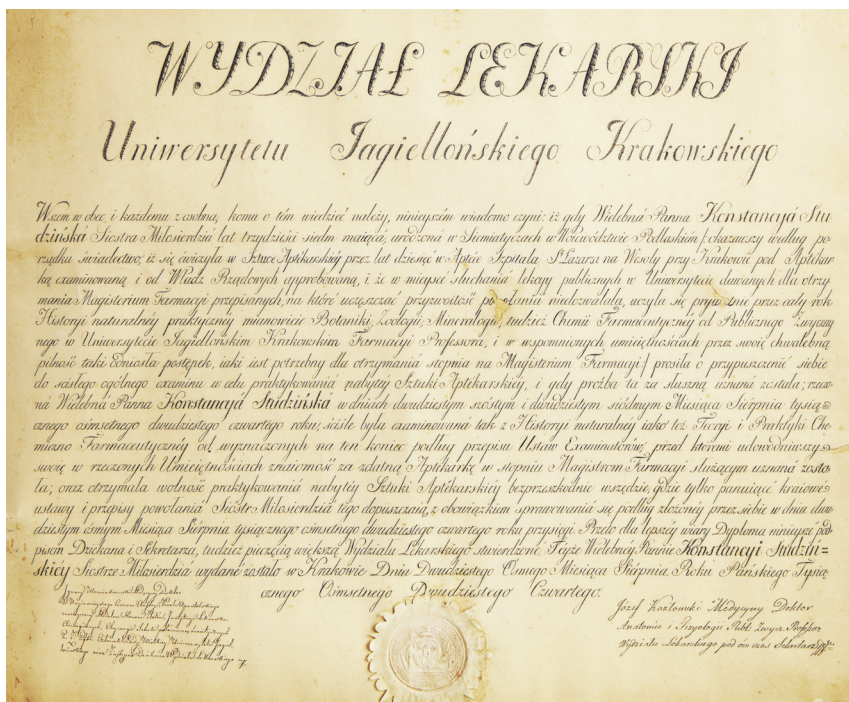 WYDZIAŁ LEKARSKI
Uniwersytetu Jagiellońskiego Krakowskiego
Wszem w obec, i każdemu z osobna, komu o tém wiedzieć należy, ninieyszém wiadomo czyni: iż gdy Wielebná Panna Konstancyá Stu
dzińská Siostra Miłosierdziá lat trzydzieści siedm maiącá, urodzoná w Siemiatyczach w Woiewództwie Podlaskiém / okazawszy według po
rządku świadectwo; iż się ćwiczyła w Sztuce Aptékarskiéy przez lat dziesięć w Aptéce Szpitala Sº Łazarza na Wesoły przy Krakowie pod Aptékar
ką examinowaną i od Władz Rządowych approbowaną, i że w mieysce słuchania lekcyy publicznych w Uniwersytecie dawanych dla otrzy
mania Magisterium Farmacyi przepisanych, na które uczęszczać przyzwoitość powołania niedozwalała, uczyła się prywatnie przez cały rok
Historyi naturalnéy praktycznéy mianowicie Botaniki, Zoologii, Mineralogii, tudzież Chemii Farmaceutycznéy od Publicznego Zwyczay
nego w Uniwersytecie Jagiellońskim Krakowskim Farmacyi Professora, i w wspomnionych umieiętnościach przez swoię chwalebną
pilność taki odniosła postępek, iaki iest potrzebny dla otrzymania stopnia na Magisterium Farmacyi / prosiła o przypuszczenie siebie
do ścisłego ogólnego examinu w celu praktykowania nabytéy Sztuki Aptékarskiéy, i gdy proźba ta za słuszną uznaną została; rzeczo
ná Wielebná Panna Konstancyá Studzińská w dniach dwudziestym szóstym i dwudziestym siódmym Miesiąca Sierpnia tysią=
cznego ośmsetnego dwudziestego czwartego roku, ściśle była examinowaná tak z Historyi naturalnéy iako też Teoryi i Praktyki Che
miczno Farmaceutycznéy od wyznaczonych na ten koniec podług przepisu Ustaw Examinatorów, przed którémi udowodniwszy
swoię w rzeczonych Umieiętnościach znaiomość za zdatną Aptékarkę w stopniu Magistrom Farmacyi służącym uznaná zosta
ła; oraz otrzymała wolność praktykowania nabytéy Sztuki Aptékarskiéy bezprzeszkodnie wszędzie, gdzie tylko panuiącé kraiowé
ustawy i przepisy powołania Sióstr Miłosierdziá tego dopuszczaią, z obowiązkiem sprawowania się podług złożonéy przez siebie w dniu dwu
dziestym ósmym Miesiąca Sierpnia tysiącznego ośmsetnego dwudziestego czwartego roku przysięgi. Przeto dla lepszéy wiary Dyploma ninieysze pod
pisem Dziekana i Sekretarza, tudzież pieczęcią większą Wydziału Lekarskiego stwierdzoné, Téyże Wielebnéy Pannie Konstancyi Studziń=
skiéy Siostrze Miłosierdziá wydané zostało w Krakowie Dnia Dwudziestego Osmego Miesiąca Sierpnia Roku Pańskiego Tysią
cznego Ośmsetnego Dwudziestego Czwartego.
Józef Kozłowski Medycyny Doktor
Anatomii i Fizyologii Publ: Zwycz: Professor
Wydziału Lekarskiego pod ów czas Sekretarz